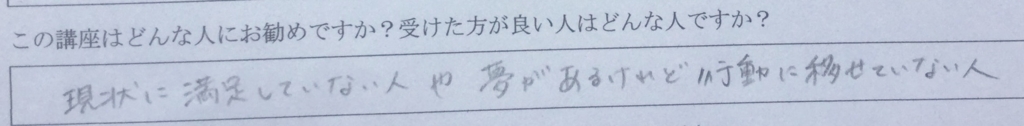 この講座はどんな人にお勧めですか？受けた方が良い人はどんな人ですか？
現状に満足していない人や夢があるけれど行動に移せていない人